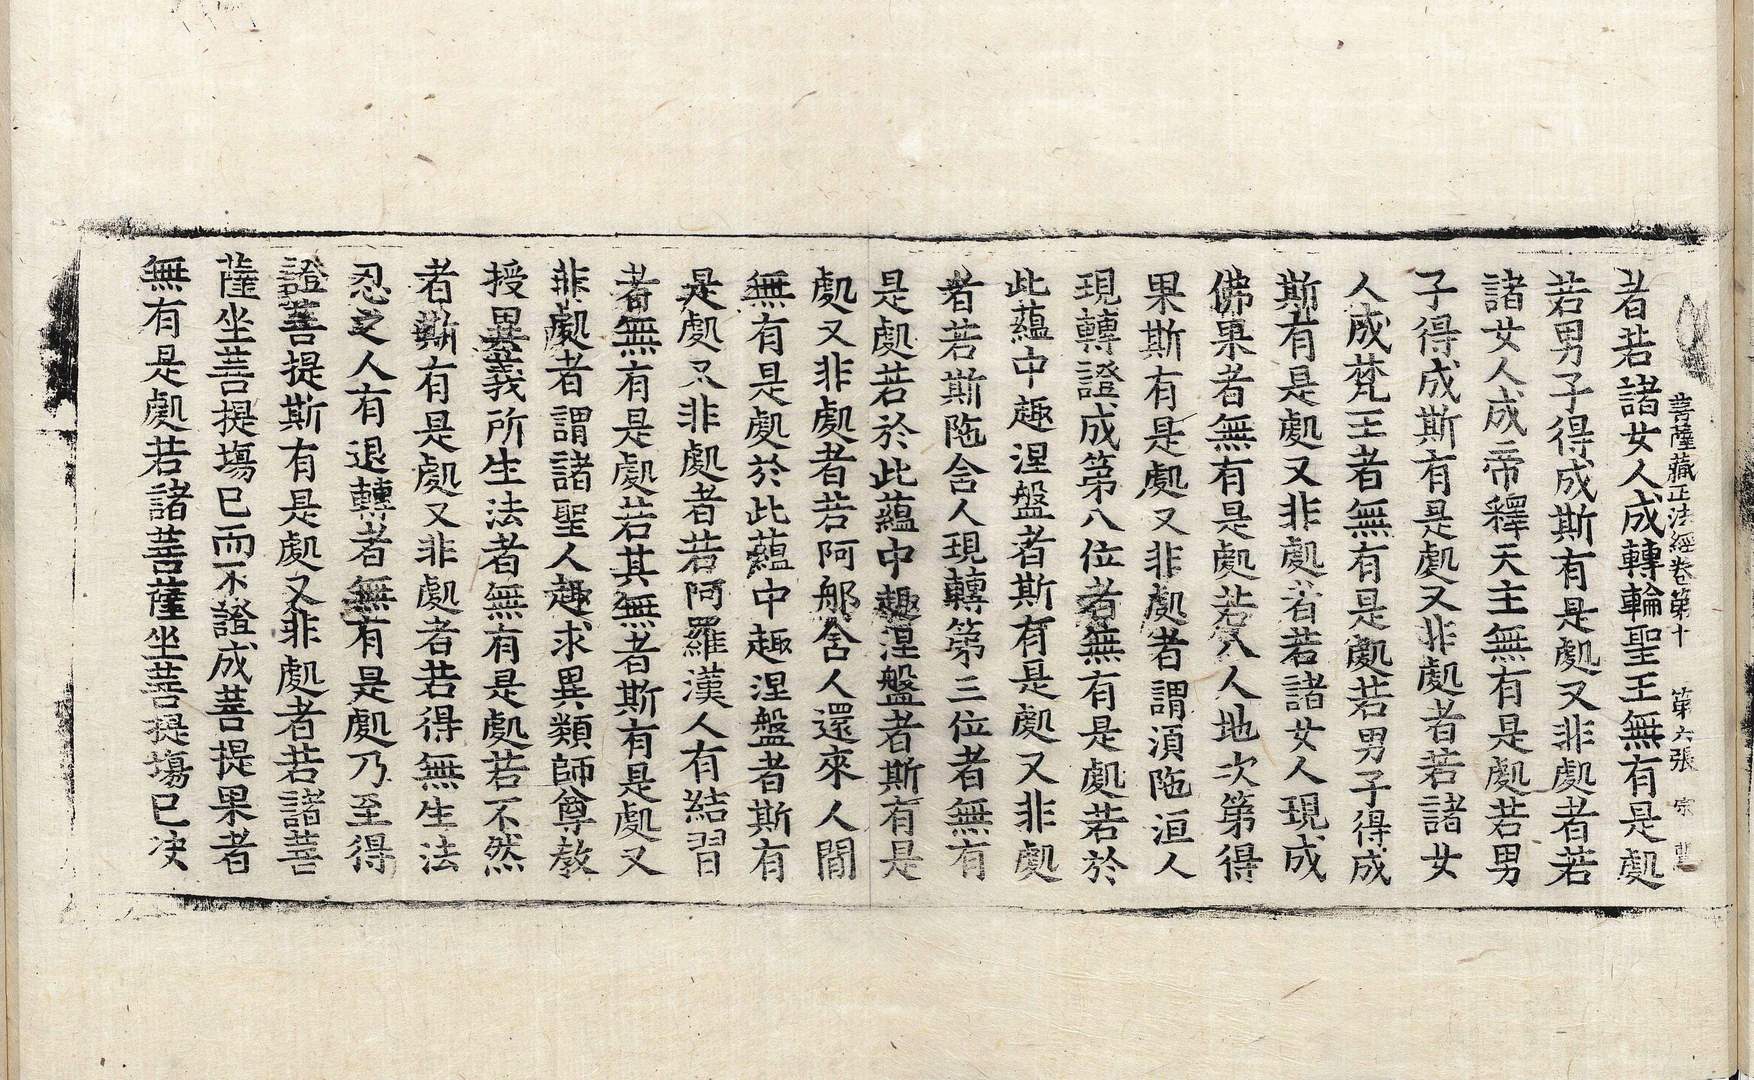 菩薩藏正法經卷第十 第六張 宗
者若諸女人成轉輪聖王無有是處
若男子得成斯有是處又非處者若
諸女人成帝釋天主無有是處若男
子得成斯有是處又非處者若諸女
人成梵王者無有是處若男子得成
斯有是處又非處者若諸女人現成
佛果者無有是處若八人地次第得
果斯有是處又非處者謂須陁洹人
現轉證成第八位者無有是處若於
此蘊中趣涅盤者斯有是處又非處
者若斯陁含人現轉第三位者無有
是處若於此蘊中趣涅盤者斯有是
處又非處者若阿那含人還來人間
無有是處於此蘊中趣涅盤者斯有
是處又非處者若阿羅漢人有結習
者無有是處若其無者斯有是處又
非處者謂諸聖人趣求異類師尊教
授異義所生法者無有是處若不然
者斯有是處又非處者若得無生法
忍之人有退轉者無有是處乃至得
證菩提斯有是處又非處者若諸菩
薩坐菩提塲已而不證成菩提果者
無有是處若諸菩薩坐菩提塲已决